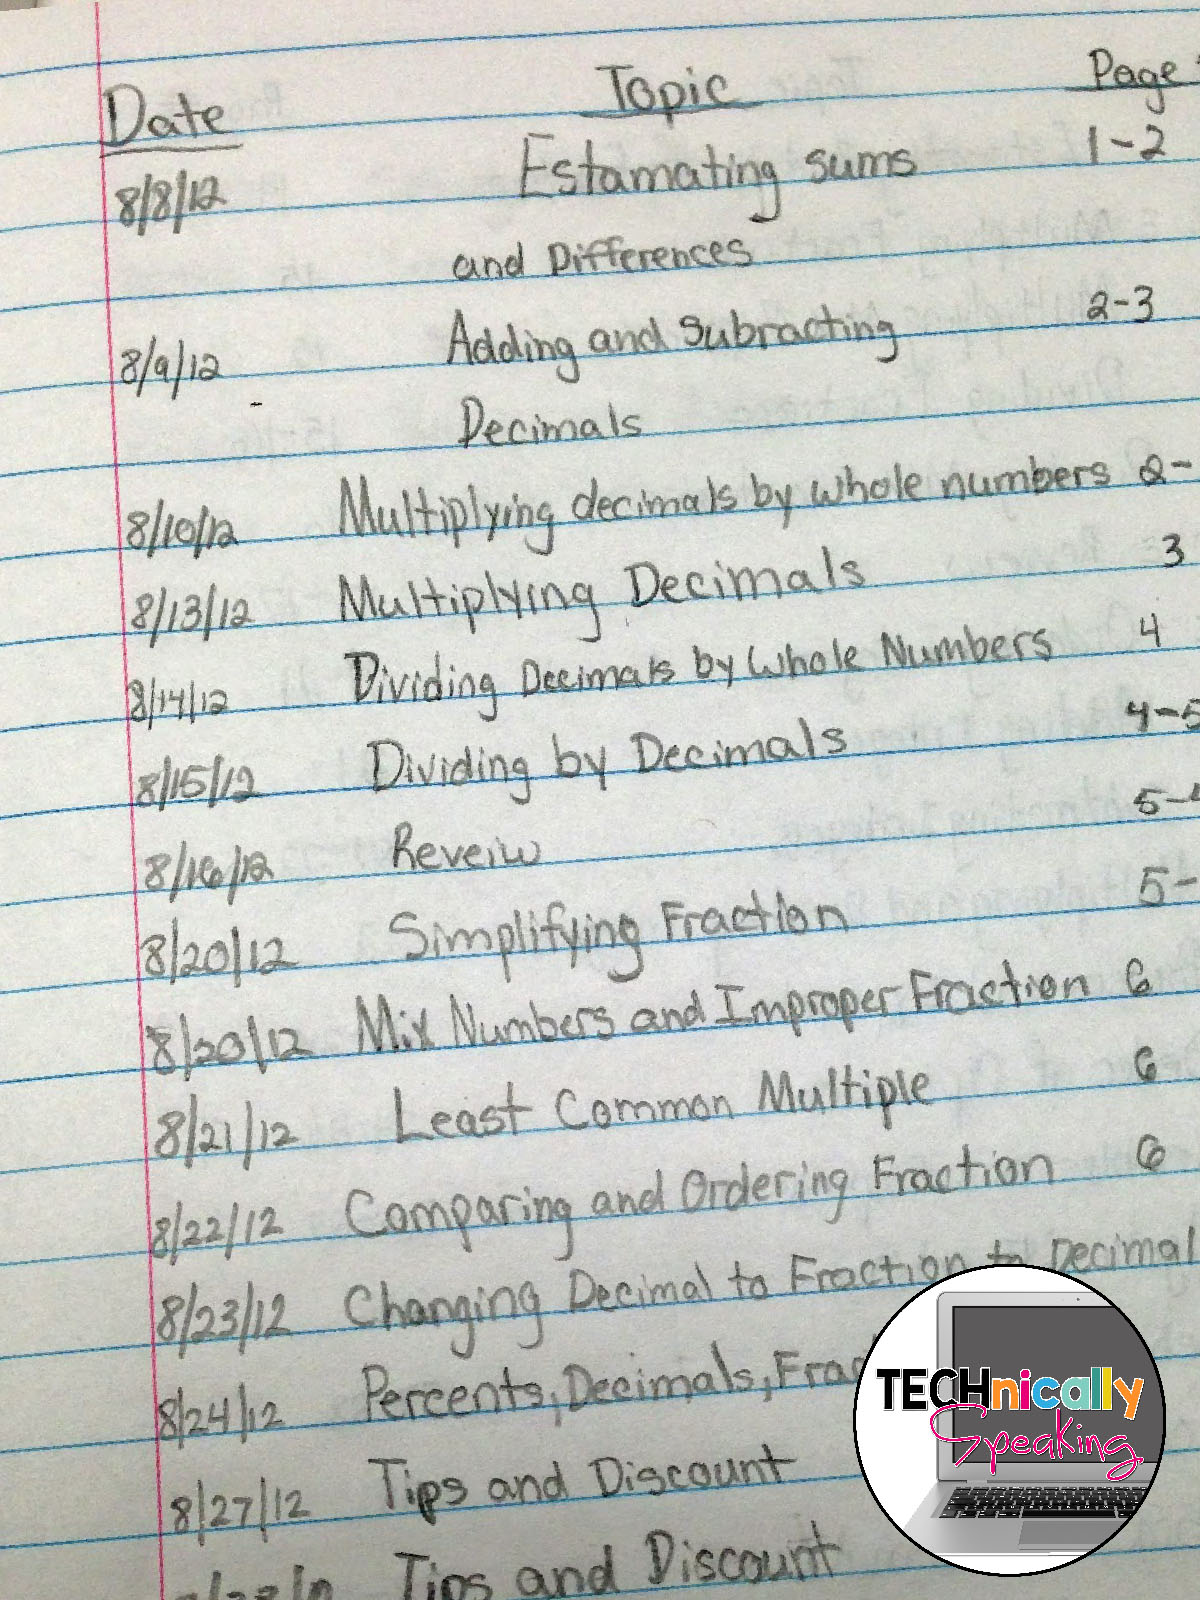 Date Topic Page
8/8/12 Estamating sums 1-2
and Differences
8/9/12 Adding and Subracting 2-3
Decimals
8/10/12 Multiplying decimals by whole numbers 2-
8/13/12 Multiplying Decimals 3
8/14/12 Dividing Decimals by Whole Numbers 4
8/15/12 Dividing by Decimals 4-5
8/16/12 Reveiw 5-
8/20/12 Simplifying Fraction 5-
8/20/12 Mix Numbers and Improper Fraction 6
8/21/12 Least Common Multiple 6
8/22/12 Comparing and Ordering Fraction 6
8/23/12 Changing Decimal to Fraction to Decimal
8/24/12 Percents, Decimals,
8/27/12 Tips and Discount
Tips and Discount
TECHnically
Speaking